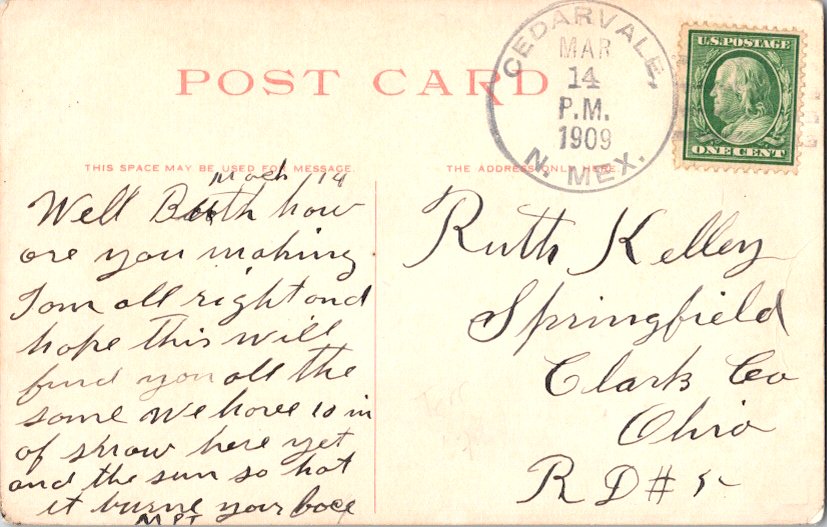 POST CARD
CEDARVALE,
MAR
14
P.M.
1909
N. MEX.
U.S. POSTAGE
ONE CENT
THIS SPACE MAY BE USED FOR MESSAGE.
THE ADDRESS ONLY HERE
March 14
Well Ruth how
are you making
I am all right and
hope this will
find you all the
same We have 10 in
of snow here yet
and the sun so hot
it burns your face
Ruth Kelley
Springfield
Clark Co
Ohio
R D #5